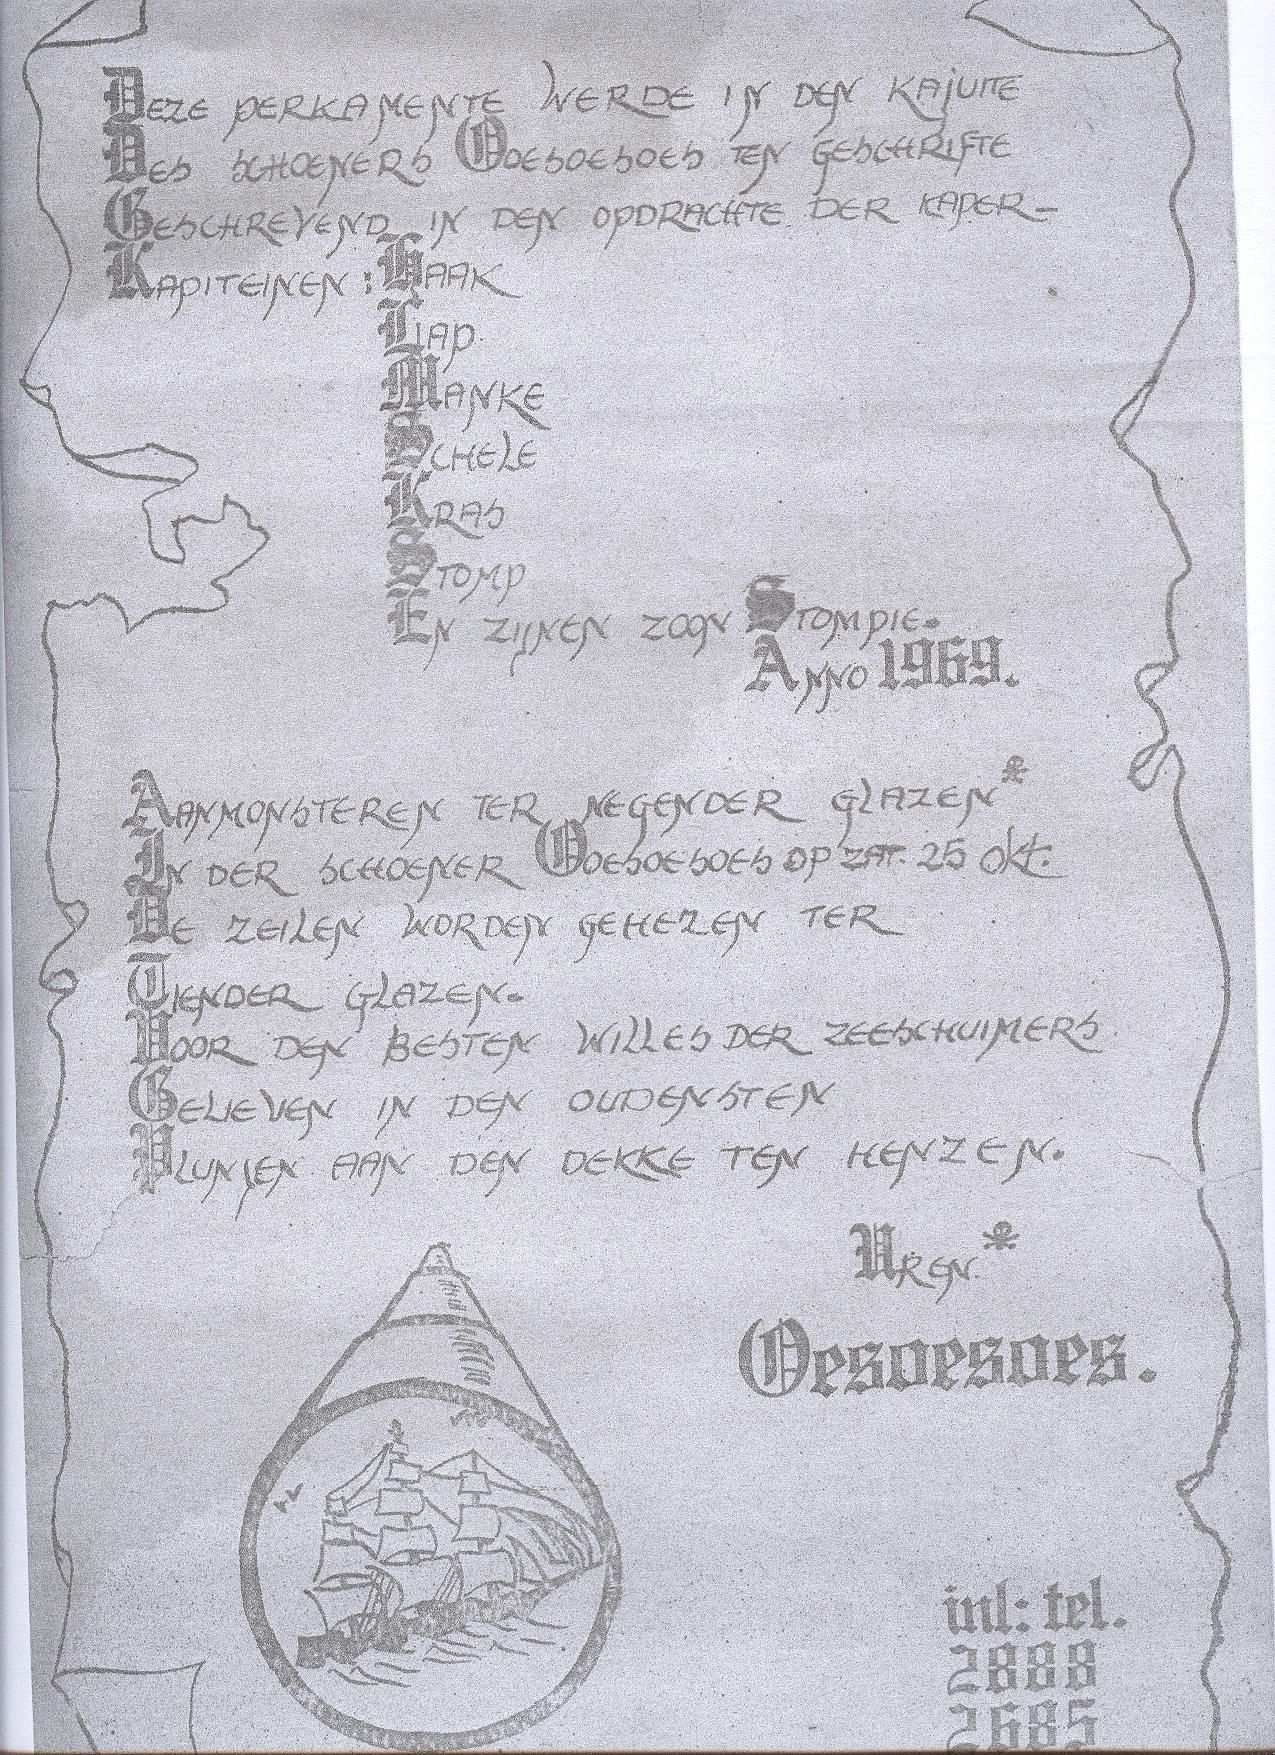 Deze perkamente werde in den kajuite
Des schoeners Ooesoesoes ten geschrifte
Geschrevend in den opdrachte der kaper-
Kapiteinen: Haak
Liap
Manke
Schele
Kras
Stomp
En zijnen zoon Stompie.
Anno 1969.
Aanmonsteren ter negender glazen*
In der schoener Ooesoesoes op zat. 25 okt.
De zeilen worden gehezen ter
Tiender glazen.
Voor den besten willes der zeeschuimers
Gelieven in den oudensten
Plunjen aan den dekke ten henzen.
Uren*
Oesoesoes.
inl: tel.
2888
2685